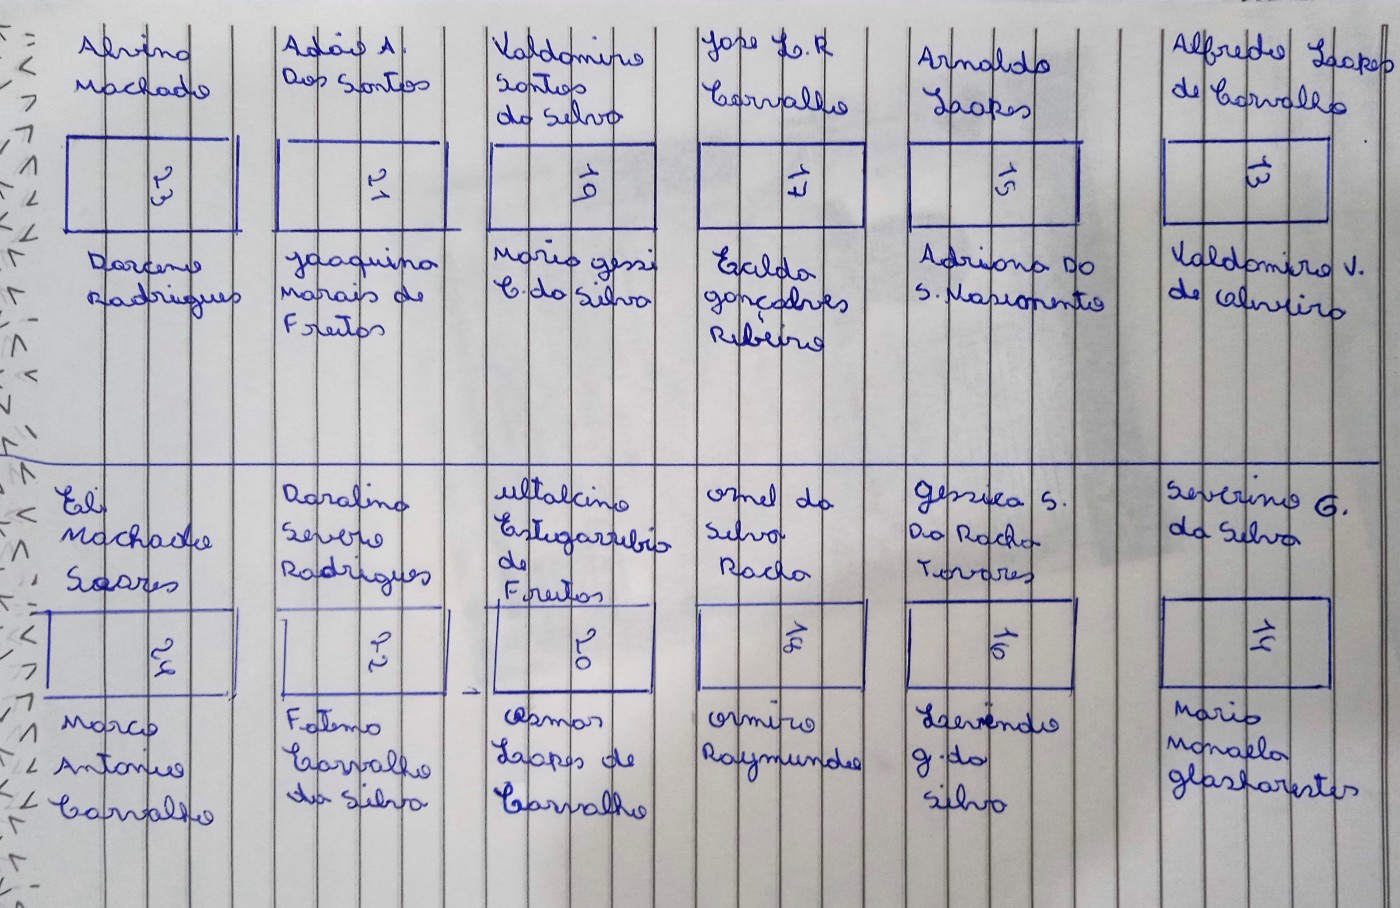 Alvino
Machado
23
Darceno
Rodrigues
Adão A.
Dos Santos
21
Joaquina
Morais de
Freitas
Valdomiro
Santos
da Silva
19
Maria gessi
C. da Silva
Jose L. R
Carvalho
17
gonçalves
Ribeiro
Arnaldo
Loopes
15
Adriana Do
S. Nascimento
Alfredo Loopes
de Carvalho
13
Valdomiro V.
de oliveira
Eli
Machado
Soares
24
Marco
Antonio
Carvalho
Doralina
Severo
Rodrigues
22
Fatima
Carvalho
da Silva
de
Freitas
20
Osmar
Loopes de
Carvalho
da
Silva
Rocha
18
Raymundo
gessica S.
Da Rocha
Tavares
16
g. da
Silva
Severino G.
da Silva
14
Maria